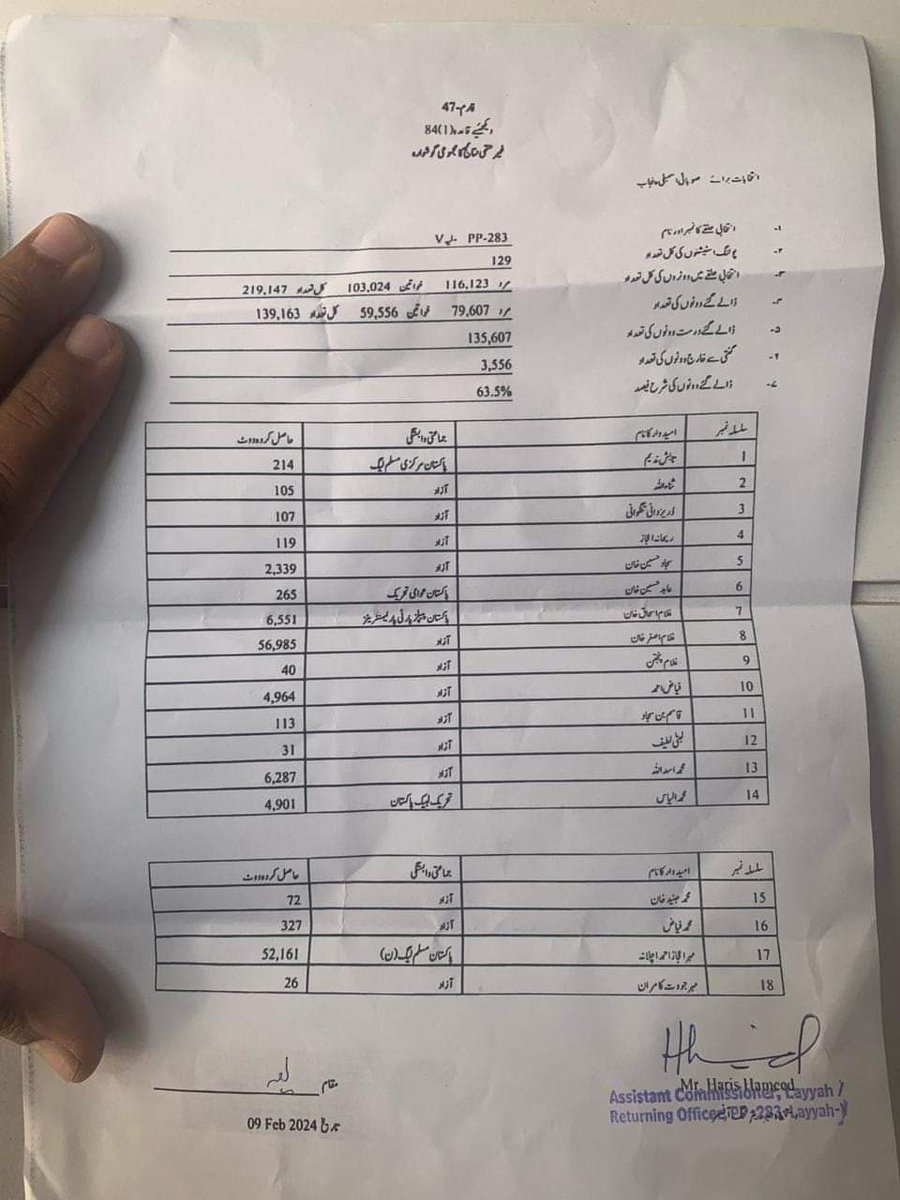 فارم-47
دیکھئیے قاعدہ 84(1)
غیر حتمی نتائج کا مجموعی گوشوارہ
انتخابات برائے صوبائی اسمبلی پنجاب
۱- انتخابی حلقے کا نمبر اور نام PP-283 لیہ-V
۲- پولنگ اسٹیشنوں کی کل تعداد 129
۳- انتخابی حلقے میں ووٹروں کی کل تعداد مرد 116,123 خواتین 103,024 کل تعداد 219,147
۴- ڈالے گئے ووٹوں کی تعداد مرد 79,607 خواتین 59,556 کل تعداد 139,163
۵- ڈالے گئے درست ووٹوں کی تعداد 135,607
۶- گنتی سے خارج ووٹوں کی تعداد 3,556
۷- ڈالے گئے ووٹوں کی شرح فیصد 63.5%
سلسلہ نمبر امیدوار کا نام جماعتی وابستگی حاصل کردہ ووٹ
1 تابش ندیم پاکستان مرکزی مسلم لیگ 214
2 ثناءاللہ آزاد 105
3 آزاد 107
4 ریحانہ اعجاز آزاد 119
5 سجاد حسین خان آزاد 2,339
6 عابد حسین خان پاکستان عوامی تحریک 265
7 غلام اسحاق خان پاکستان پیپلز پارٹی پارلیمنٹیرینز 6,551
8 غلام اصغر خان آزاد 56,985
9 غلام پنجتن آزاد 40
10 فیاض احمد آزاد 4,964
11 قاسم بن سجاد آزاد 113
12 لبنیٰ لطیف آزاد 31
13 محمد اسد اللہ آزاد 6,287
14 محمد الیاس تحریک لبیک پاکستان 4,901
سلسلہ نمبر امیدوار کا نام جماعتی وابستگی حاصل کردہ ووٹ
15 محمد جنید خان آزاد 72
16 محمد فیاض آزاد 327
17 مہر اعجاز احمد اچلانہ پاکستان مسلم لیگ (ن) 52,161
18 مہر جودت کامران آزاد 26
مقام لیہ
Mr. Haris Hameed
Assistant Commissioner, Layyah /
Returning Officer PP-283-Layyah-V
تاریخ 09 Feb 2024